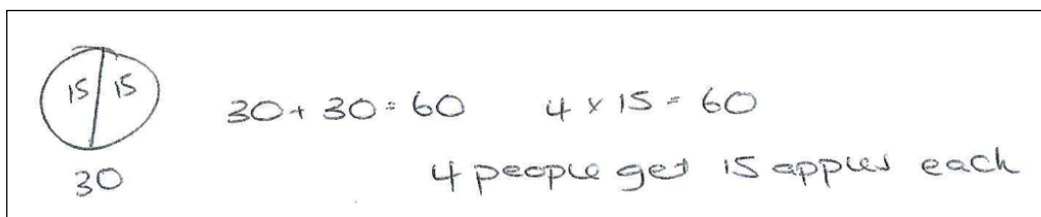 15 15
30 + 30 = 60 4 x 15 = 60
30
4 people get 15 apples each